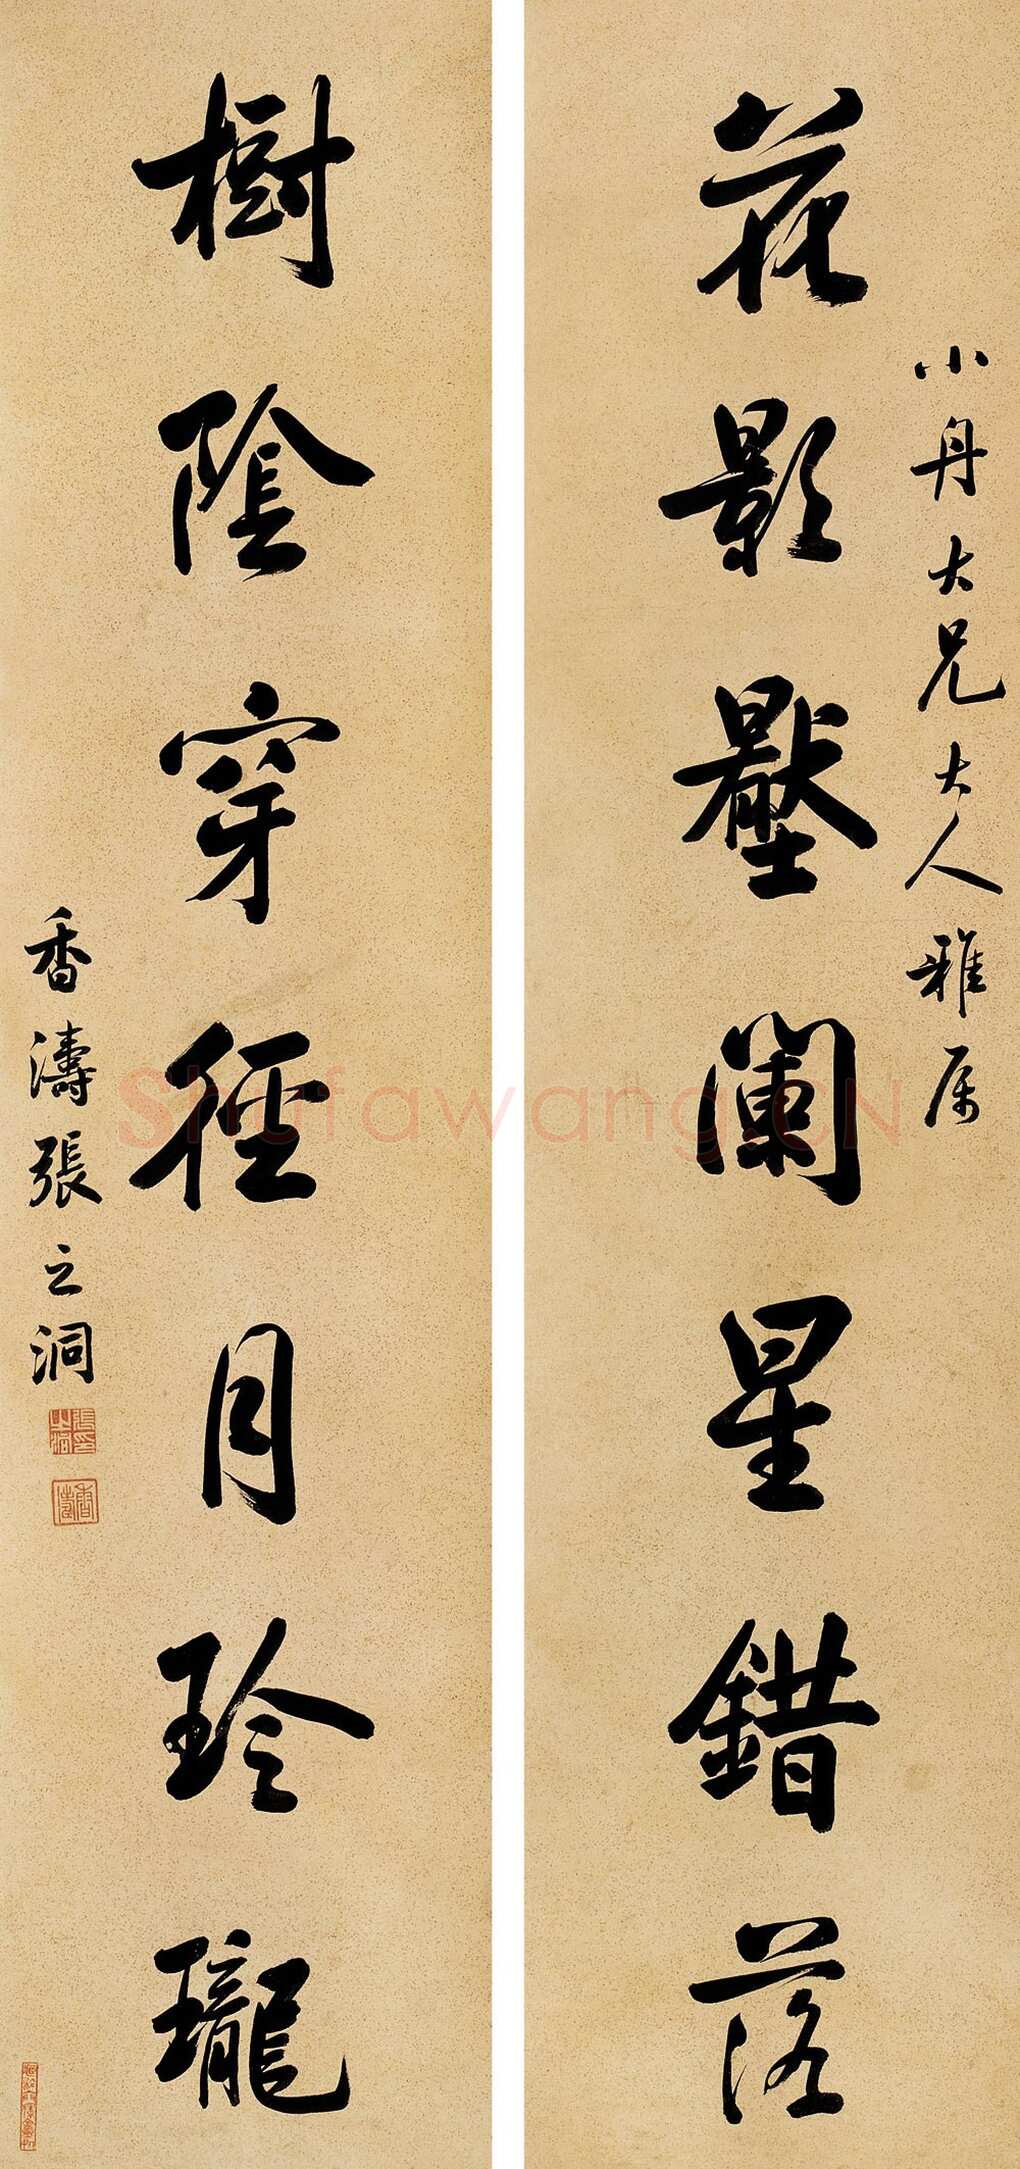 小丹大兄大人雅属
花影壓闌星錯落
樹陰穿徑月玲瓏
香濤張之洞
Shufawang.CN